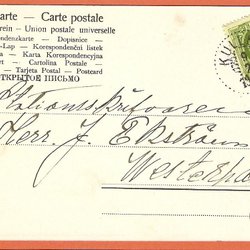 arte – Carte postale
rein – Union postale universelle
ndenzkarte – Dopisnice –
-Lap – Korespondenční lístek
a – Karta Korespondencyjna
ert – Cartolina Postale –
– Tarjeta Postal – Postcard
ТКРЫТОЕ ПИСЬМО
Stationsskrifvaren
Herr J. Ekström